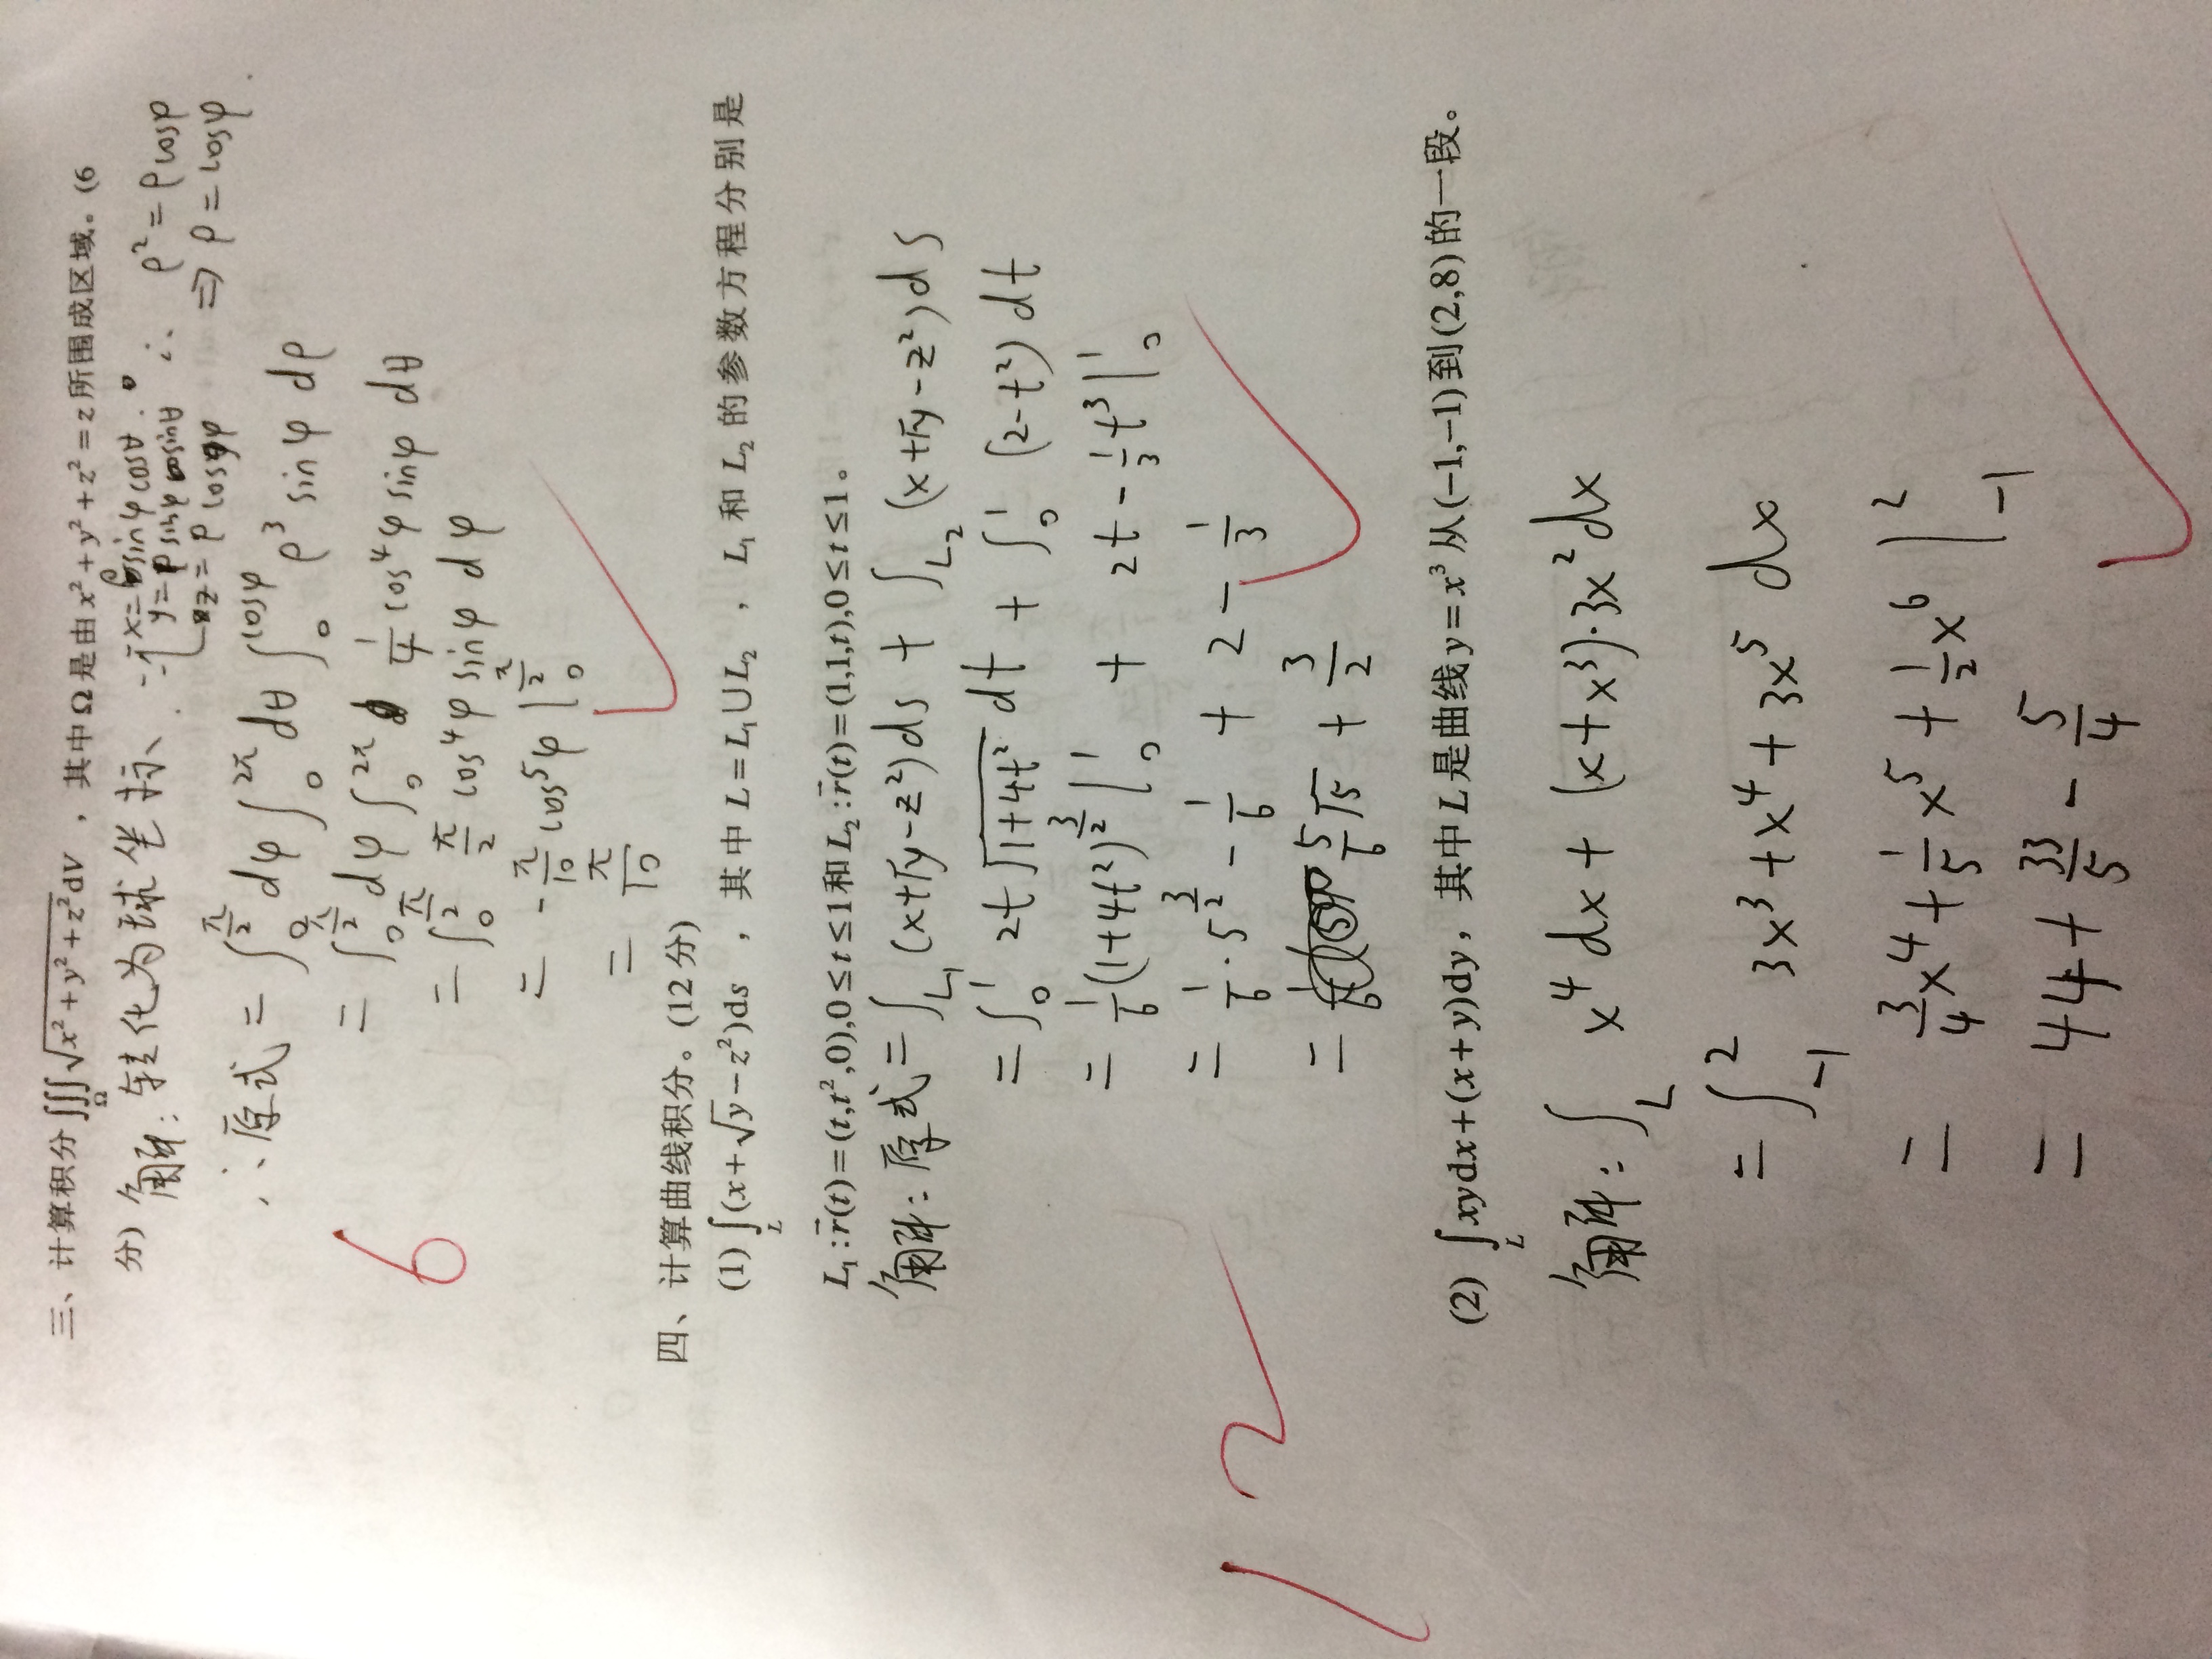 三、计算积分∭_Ω √(x²+y²+z²)dV ，其中Ω是由x²+y²+z²=z所围成区域。(6
分) 解：转化为球坐标、 x=ρsinφcosθ. ∴ ρ²=ρcosρ
y=ρsinφsinθ
z=ρcosφ ⇒ ρ=cosφ.
∴原式=∫_0^{π/2}dφ∫_0^{2π}dθ∫_0^{cosφ}ρ³sinφ dρ
=∫_0^{π/2}dφ∫_0^{2π} 1/4 cos⁴φ sinφ dθ
=∫_0^{π/2} π/2 cos⁴φ sinφ dφ
= -π/10 cos⁵φ |_0^{π/2}
= π/10
6
四、计算曲线积分。(12分)
(1) ∫_L(x+√y−z²)ds ，其中L=L₁∪L₂ ，L₁和L₂的参数方程分别是
L₁:r̄(t)=(t,t²,0),0≤t≤1和L₂:r̄(t)=(1,1,t),0≤t≤1。
解：原式=∫_{L₁}(x+√y−z²)ds + ∫_{L₂}(x+√y−z²)ds
=∫_0^1 2t√(1+4t²) dt + ∫_0^1 (2-t²) dt
= 1/6(1+4t²)^{3/2}|_0^1 + 2t-1/3t³|_0^1
= 1/6·5^{3/2} - 1/6 + 2 - 1/3
= 5/6√5 + 3/2
12
(2) ∫_L xydx+(x+y)dy，其中L是曲线y=x³从(−1,−1)到(2,8)的一段。
解：∫_L x⁴dx+(x+x³)·3x²dx
=∫_{-1}^2 3x³+x⁴+3x⁵ dx
= 3/4x⁴+1/5x⁵+1/2x⁶ |_{-1}^2
= 44+33/5-5/4